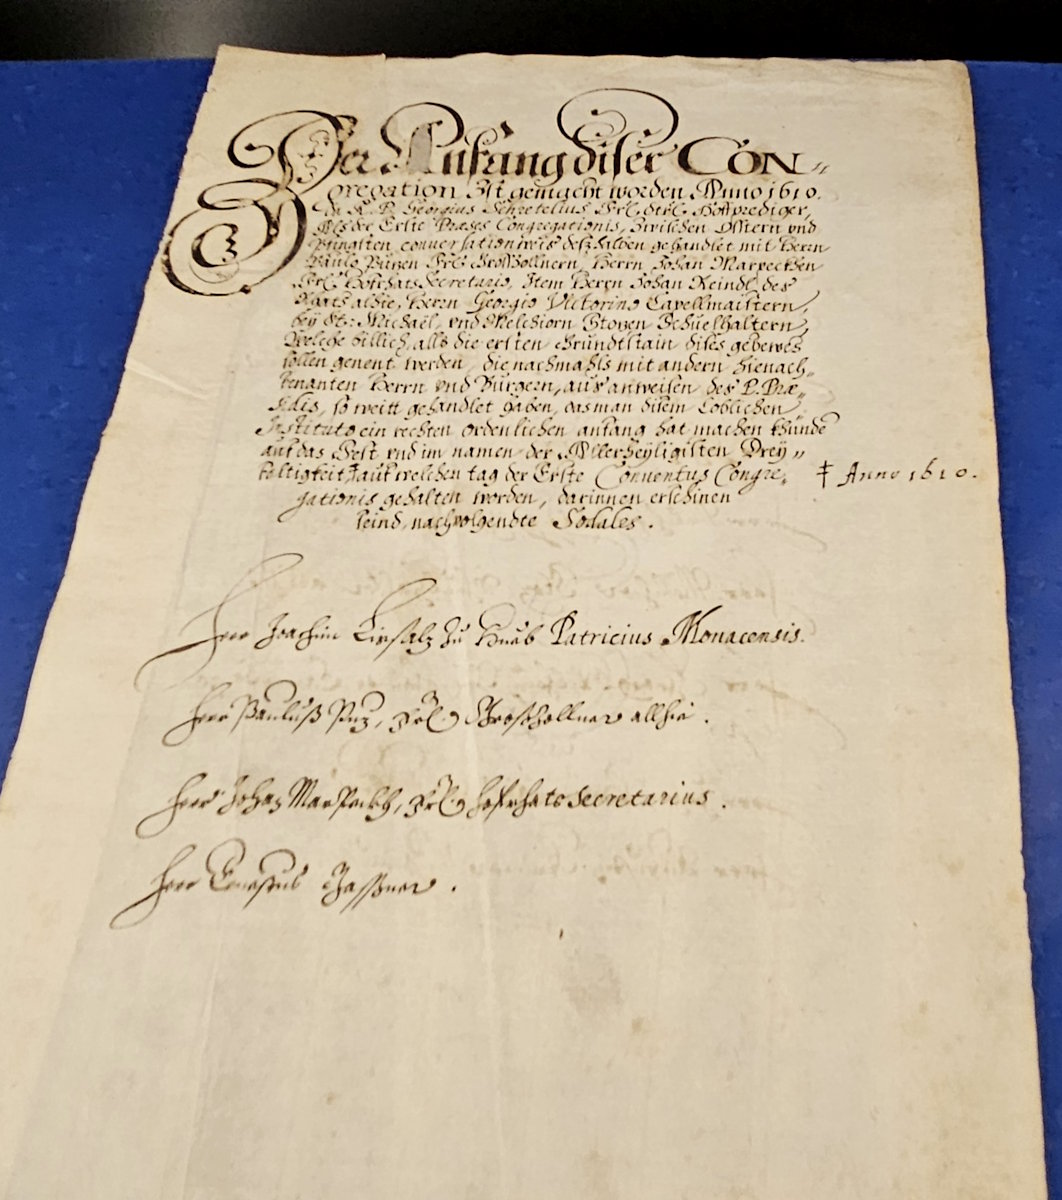 Der Anfang diser CON„
gregation Ist gemacht worden Anno 1610.
Da R. P. Georgius Schretelius Frl. Drl. Hofprediger,
Als der Erste Præses Congregationis, zwischen Ostern vnd
Pfingsten conuersationweis deszhalben gehandlet mit Herrn
Paulo Puzen Frl. Großzollnern, Herrn Johan Marpeckhen
Frl. Hofrhats Secretario, Item Herrn Johan Reindl des
Raats alhie, Herrn Georgio Victorino Capellmaistern,
bey St: Michaël, vnd Melchiorn Stoyen Schuelhaltern,
Weliche billich, alls die ersten Grundtstain dises gebewes
sollen genent werden, die nachmahls mit andern hienach„
benanten Herrn vnd Burgern, aus anweisen des P. Præ„
sidis, so weitt gehandlet haben, das man disem Loblichen
Instituto ein rechten ordenlichen anfang hat machen khünde
auf das Fest vnd im namen der Allerheyligisten Drey„
faltigkeit ‡ auf welchen tag der Erste Conuentus Congre„ ‡ Anno 1610.
gationis gehalten worden, darinnen erschinen
seind nachvolgendte Sodales.
Herr Joachim zu Patricius Monacensis.
Herr Pauluß Puz, Frl. Groszollner allhie.
Herr Johan Marpeckh, Frl. Hofrhats Secretarius.
Herr